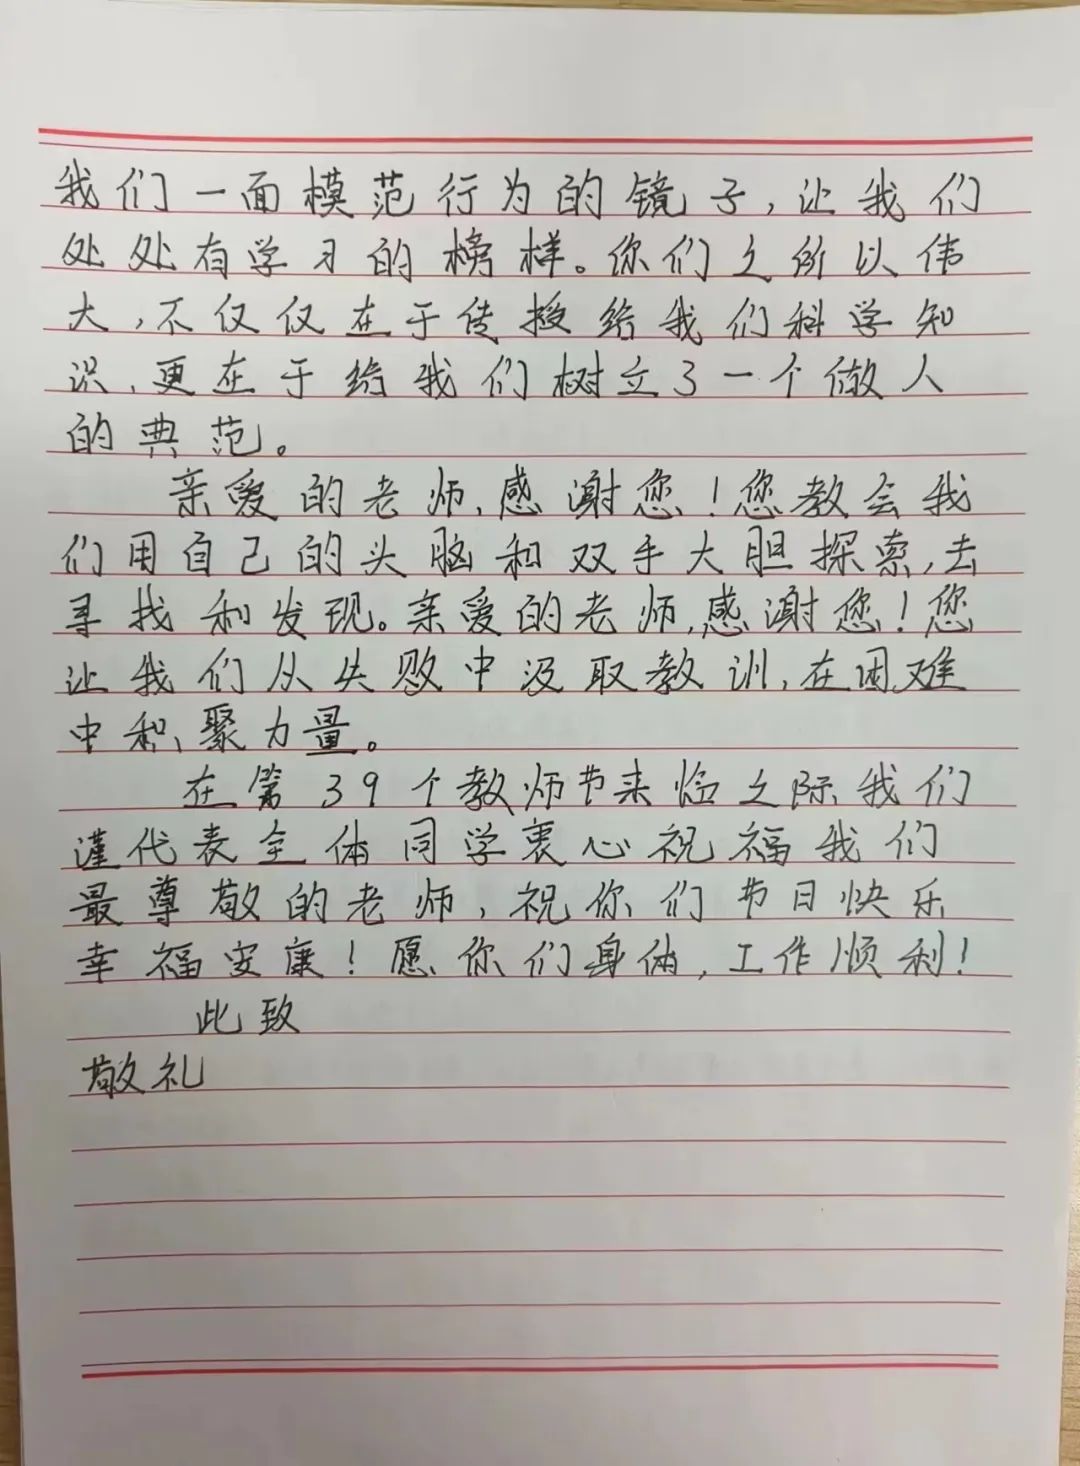 我们一面模范行为的镜子,让我们
处处有学习的榜样。你们之所以伟
大,不仅仅在于传授给我们科学知
识,更在于给我们树立了一个做人
的典范。
亲爱的老师,感谢您!您教会我
们用自己的头脑和双手大胆探索,去
寻找和发现。亲爱的老师,感谢您!您
让我们从失败中汲取教训,在困难
中积聚力量。
在第39个教师节来临之际我们
谨代表全体同学衷心祝福我们
最尊敬的老师,祝你们节日快乐
幸福安康!愿你们身体,工作顺利!
此致
敬礼